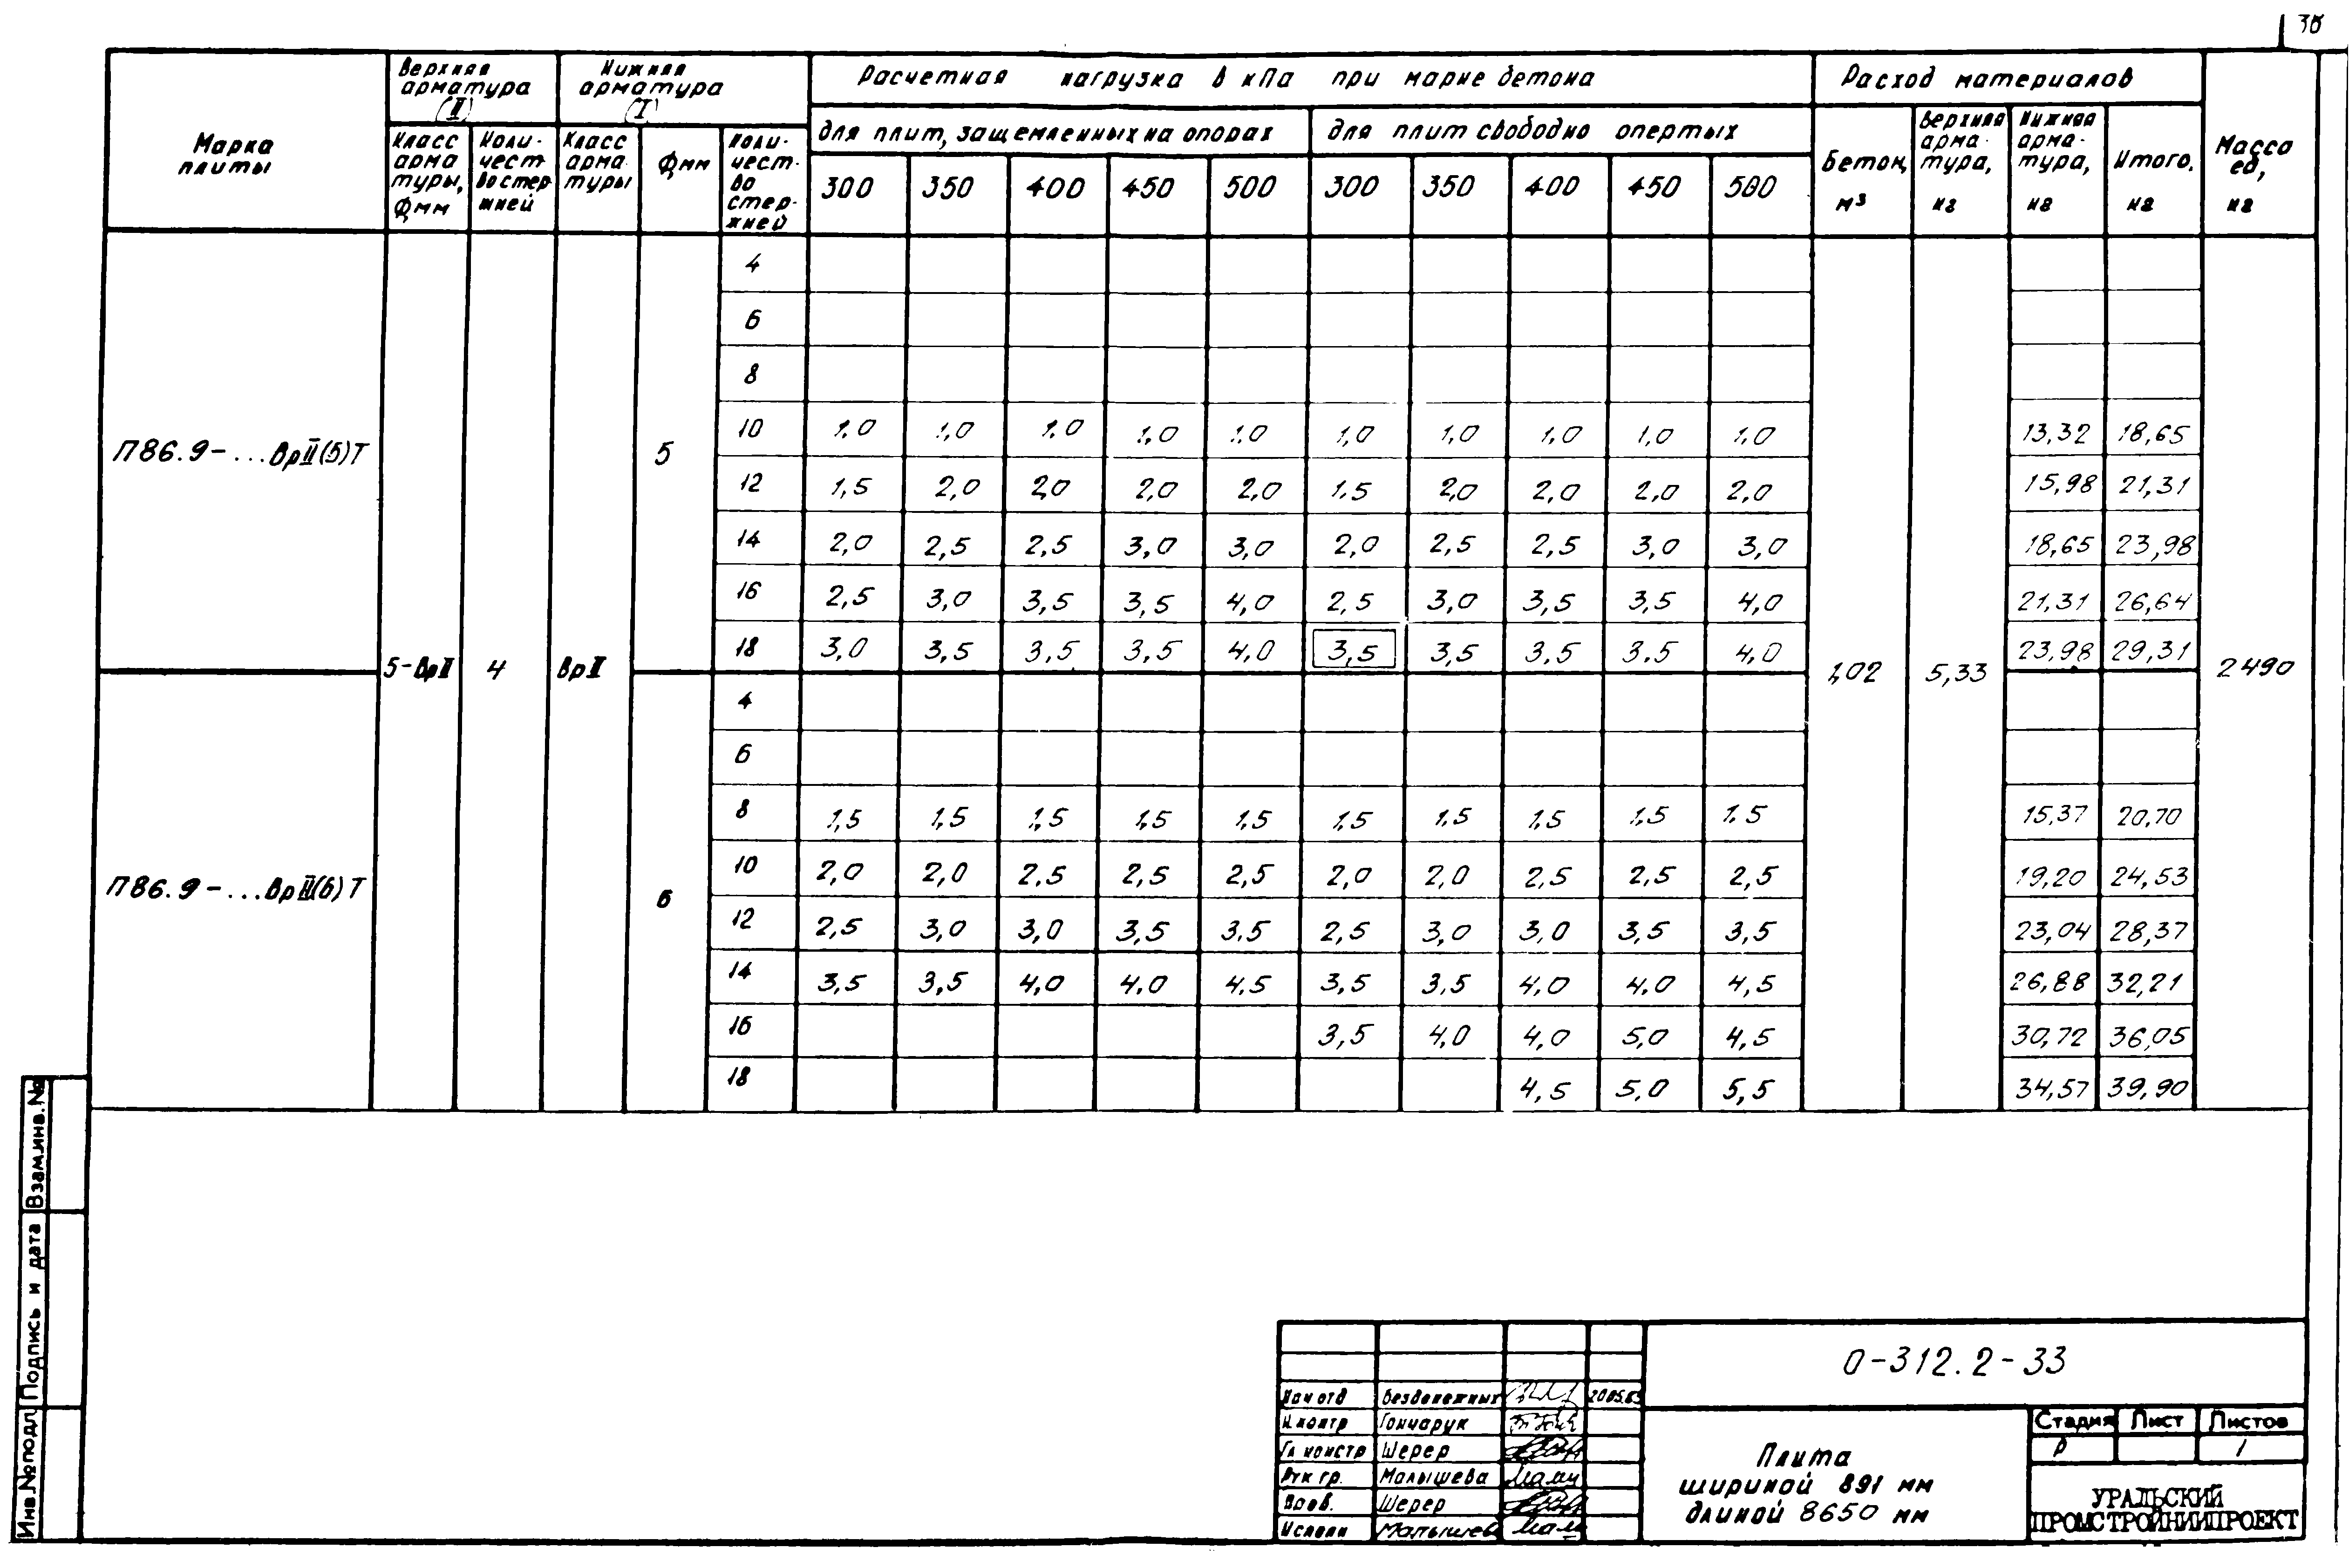 36
Марка плиты
Верхняя арматура (II)
Нижняя арматура (I)
Расчетная нагрузка в кПа при марке бетона
Расход материалов
Масса ед, кг
Класс арма туры, Фмм
Коли- чест- во стер жней
Класс арма- туры
Фмм
Коли- чест- во стер- жней
для плит, защемленных на опорах
для плит свободно опертых
Бетон, м³
Верхняя арма- тура, кг
Нижняя арма- тура, кг
Итого, кг
300 350 400 450 500 300 350 400 450 500
П86.9-...ВрII(5)Т
5-ВрII 4 ВрII 5
1,02 5,33 2490
4
6
8
10 1,0 1,0 1,0 1,0 1,0 1,0 1,0 1,0 1,0 1,0 13,32 18,65
12 1,5 2,0 2,0 2,0 2,0 1,5 2,0 2,0 2,0 2,0 15,98 21,31
14 2,0 2,5 2,5 3,0 3,0 2,0 2,5 2,5 3,0 3,0 18,65 23,98
16 2,5 3,0 3,5 3,5 4,0 2,5 3,0 3,5 3,5 4,0 21,31 26,64
18 3,0 3,5 3,5 3,5 4,0 3,5 3,5 3,5 3,5 4,0 23,98 29,31
П86.9-...ВрII(6)Т
6
4
6
8 1,5 1,5 1,5 1,5 1,5 1,5 1,5 1,5 1,5 1,5 15,37 20,70
10 2,0 2,0 2,5 2,5 2,5 2,0 2,0 2,5 2,5 2,5 19,20 24,53
12 2,5 3,0 3,0 3,5 3,5 2,5 3,0 3,0 3,5 3,5 23,04 28,37
14 3,5 3,5 4,0 4,0 4,5 3,5 3,5 4,0 4,0 4,5 26,88 32,21
16 3,5 4,0 4,0 5,0 4,5 30,72 36,05
18 4,5 5,0 5,5 34,57 39,90
Взам.инв.№
Подпись и дата
Инв.№подл.
О-312.2-33
Нач отд Безденежных
Н.контр Гончарук
Гл констр Шерер
Рук гр. Малышева
Пров. Шерер
Исполн Малышева
Плита
шириной 891 мм
длиной 8650 мм
Стадия Лист Листов
Р 1
УРАЛЬСКИЙ
ПРОМСТРОЙНИИПРОЕКТ